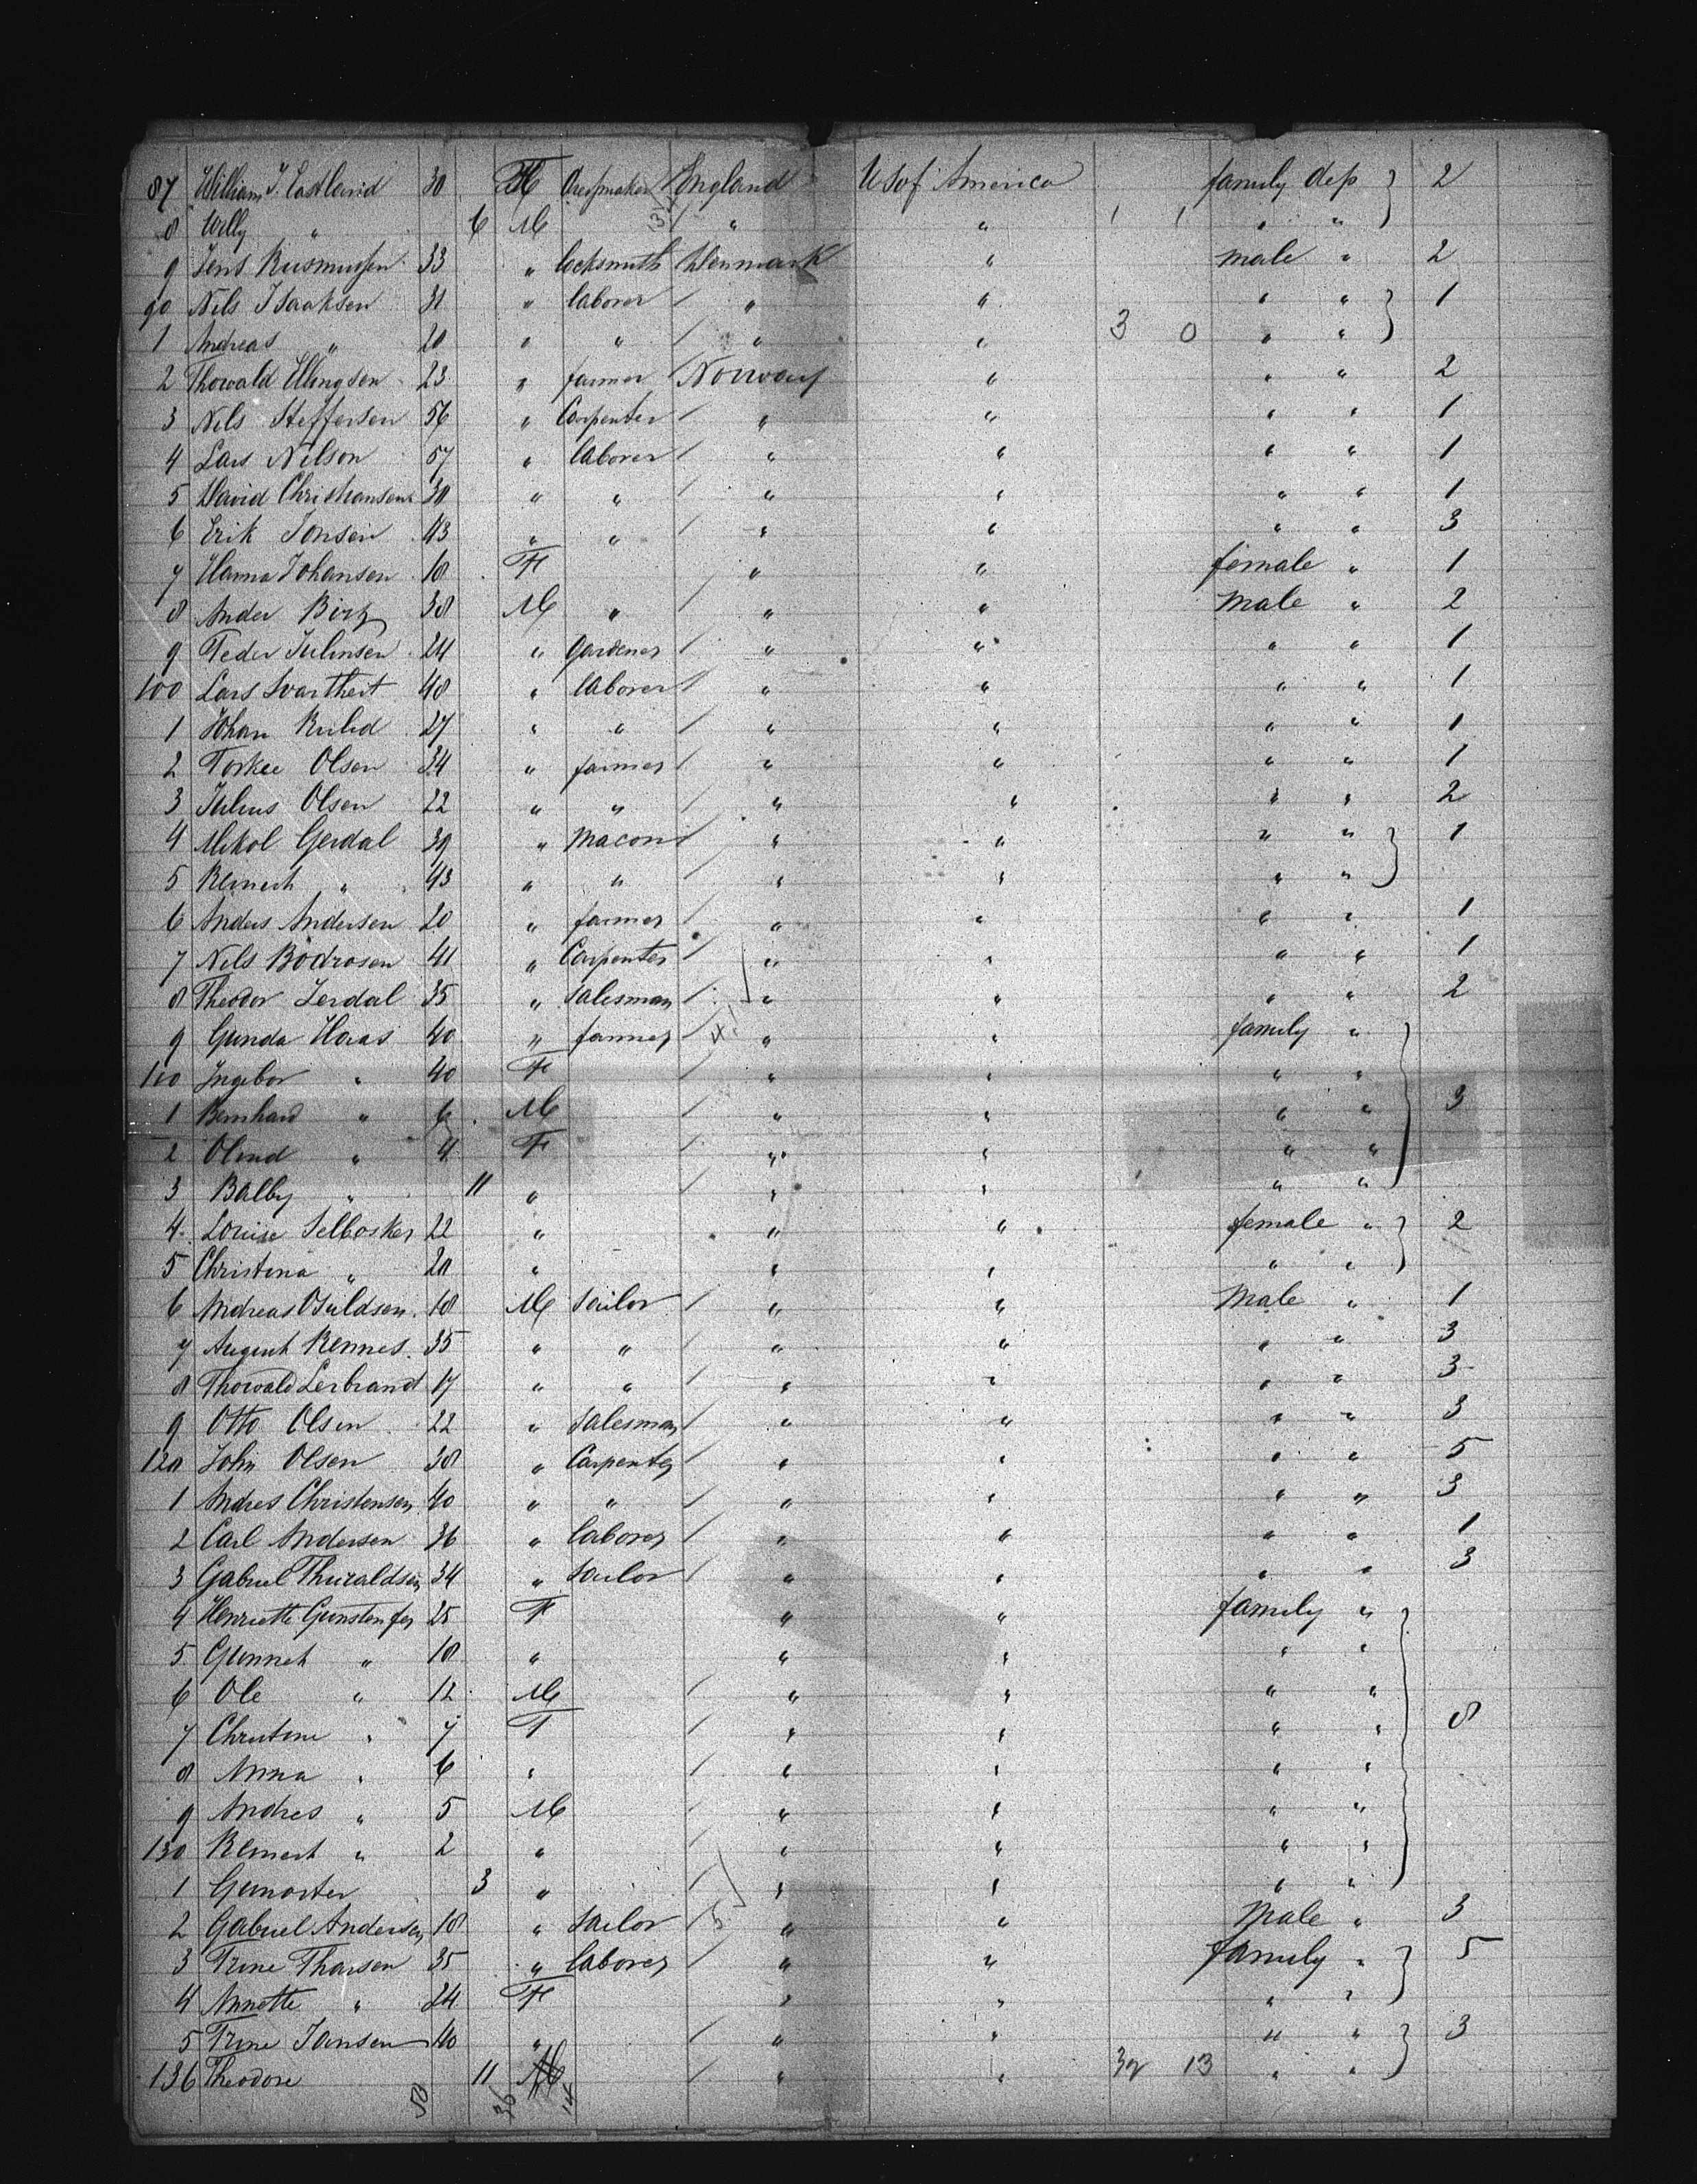 87 William J. Eastland 30 F Dressmaker England U S of America family dep 2
8 Willy " 6 M " " 1 1 " "
9 Jens Rusmussen 33 " locksmith Denmark " male " 2
90 Nils Isaaksen 31 " laborer " " " " 1
1 Andreas " 20 " " " " 3 0 " "
2 Thorvald Ellingsen 23 " farmer Norway " " " 2
3 Nils Steffersen 56 " Carpenter " " " " 1
4 Lars Nilson 57 " laborer " " " " 1
5 David Christiansen 30 " " " " " " 1
6 Erik Jonsen 43 " " " " " " 3
7 Hanna Johansen 18 F " " female " 1
8 Ander Birg 38 M " " " male " 2
9 Peder Julinsen 24 " gardener " " " " 1
100 Lars Svartheit 48 " laborer " " " " 1
1 Johan Rulid 27 " " " " " " 1
2 Torkee Olsen 34 " farmer " " " " 1
3 Julius Olsen 22 " " " " " " 2
4 Mikol Gerdal 39 " Macon " " " " 1
5 Reinert " 43 " " " " " "
6 Anders Andersen 20 " farmer " " " " 1
7 Nils Bodrosen 41 " Carpenter " " " " 1
8 Theodor Jerdal 35 " Salesman " " " " 2
9 Gunda Haas 40 " farmer " " family "
110 Ingebor " 40 F " " " "
1 Bernhard " 6 M " " " " 3
2 Olind " 4 F " " " "
3 Balby " 11 " " " " "
4 Louise Selbosker 22 " " " female " 2
5 Christina " 20 " " " " "
6 Andreas Osuldsen 18 M Sailor " " Male " 1
7 August Rennes 35 " " " " " " 3
8 Thorvald Lerbrand 17 " " " " " " 3
9 Otto Olsen 22 " Salesman " " " " 3
120 John Olsen 38 " Carpenter " " " " 5
1 Andres Christensen 40 " " " " " " 3
2 Carl Andersen 36 " laborer " " " " 1
3 Gabriel Thuraldsen 34 " Sailor " " " " 3
4 Henriette Gunstenfer 25 F " " family "
5 Gunneh " 18 " " " " "
6 Ole " 12 M " " " "
7 Christine " 7 F " " " " 8
8 Anna " 6 " " " " "
9 Andres " 5 M " " " "
130 Reinert " 2 " " " " "
1 Gunorter 3 " " " " "
2 Gabriel Andersen 18 " Sailor " " Male " 3
3 Trine Tharsen 35 " laborer " " family " 5
4 Annette " 24 F " " " "
5 Trine Jansen 40 " " " " " 3
136 Theodore 11 M " " 32 13 " "
50 36 14